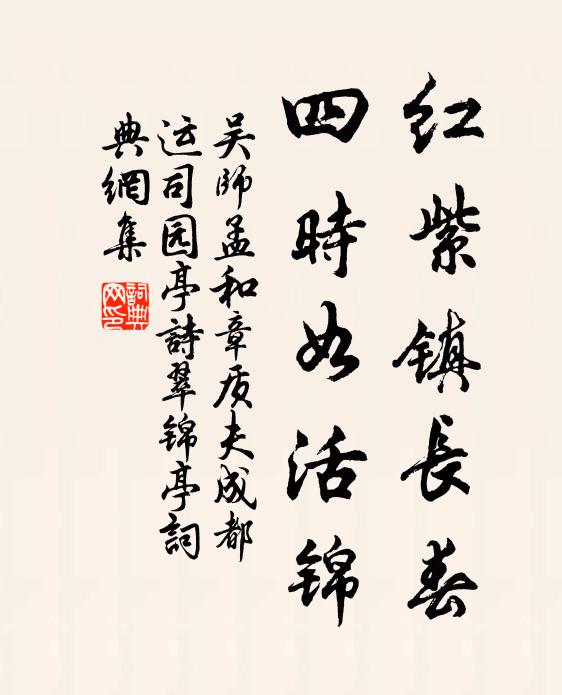 红紫镇長春
四時如活锦
吴師孟和章质夫成都
运司园亭詩翠锦亭詞
典網集
詞典网印